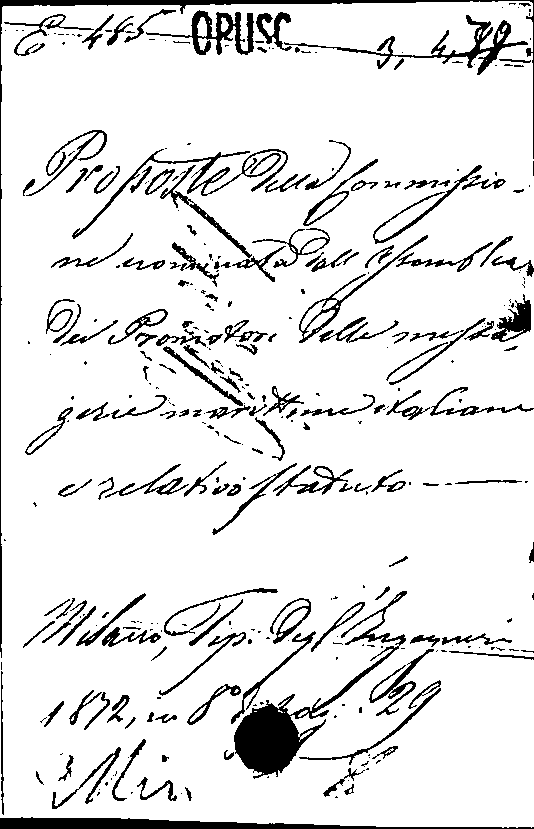 E. 485 OPUSC. 3, 4, 79
Proposte della Commissio-
ne nominata dall'Assemblea
dei Promotori delle messa-
gerie marittime italiane
e relativo statuto ——
Milano, Tip. degl'Ingegneri
1872, in 8° di pag. 29
Mir.